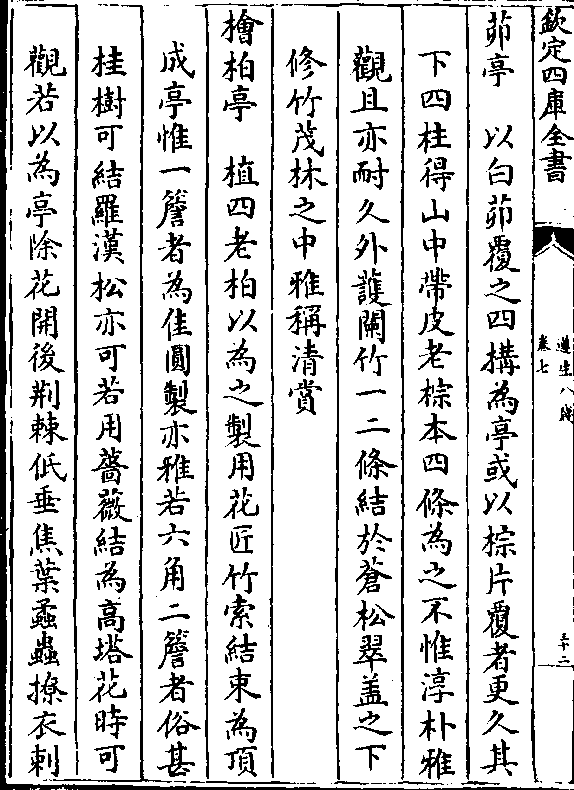 欽定四庫全書
遵生八牋
卷七
三十三
茆亭　以白茆覆之四搆為亭或以棕片覆者更久其
下四柱得山中帶皮老棕本四條為之不惟淳朴雅
觀且亦耐久外護闌竹一二條結於蒼松翠盖之下
修竹茂林之中雅稱清賞
檜柏亭　植四老柏以為之製用花匠竹索結束為頂
成亭惟一簷者為佳圓製亦雅若六角二簷者俗甚
桂樹可結羅漢松亦可若用薔薇結為高塔花時可
觀若以為亭除花開後荆棘低垂焦葉蟊蟲撩衣刺